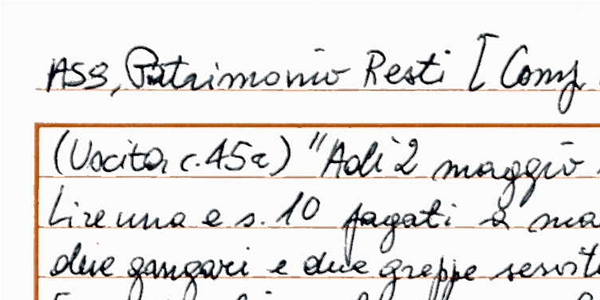 ASB, Patrimonio Resti [Comp
(Uscita, c. 45a) "Adì 2 maggio
Lire una e s. 10 pagati a ma
due gangari e due greppe servite